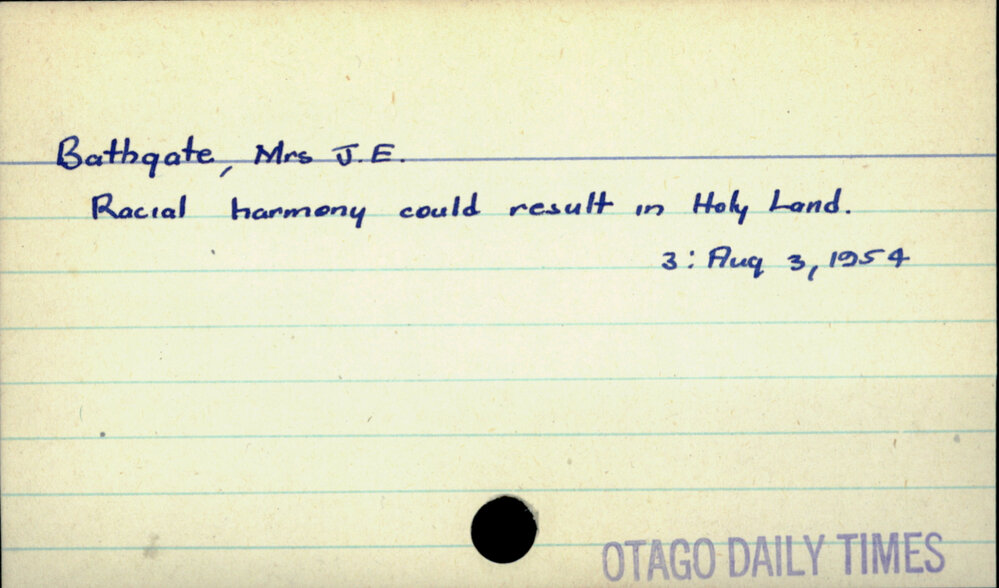 Bathgate, Mrs J.E.
Racial harmony could result in Holy Land.
3: Aug 3, 1954
OTAGO DAILY TIMES